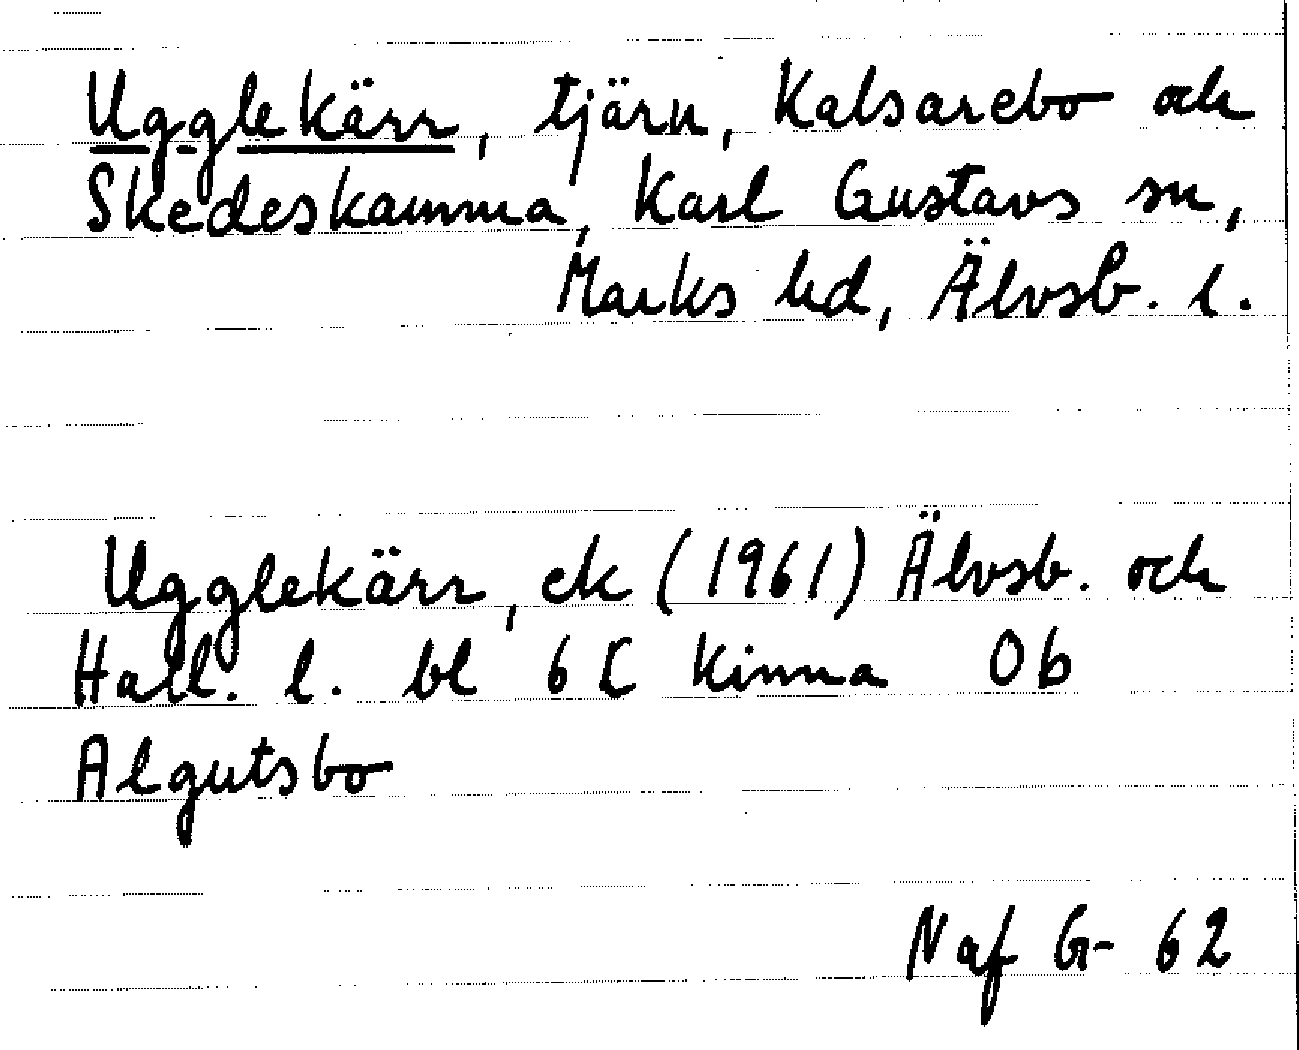 Ugglekärr, tjärn, Kalsarebo och
Skedeskamma, Karl Gustavs sn,
Marks hd, Älvsb. l.
Ugglekärr, ek (1961) Älvsb. och
Hall. l. bl 6 C Kinna 0b
Algutsbo
Naf G- 62